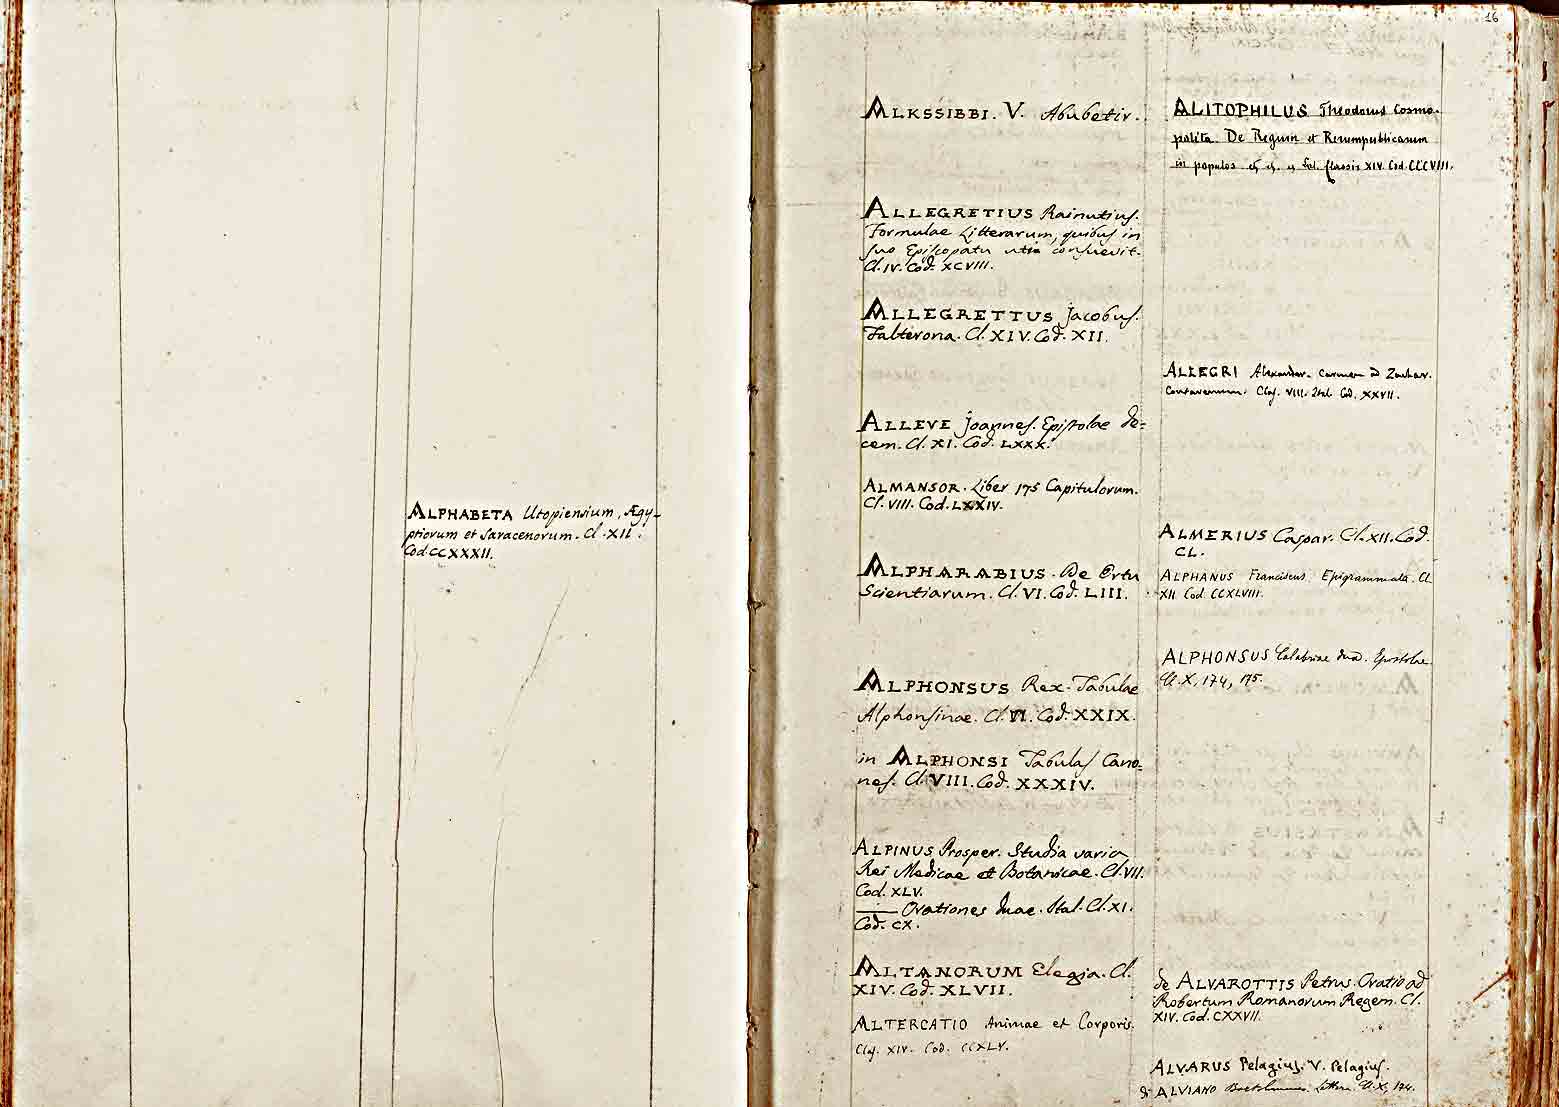 ALPHABETA Utopiensium, Ægy-
ptiorum et Saracenorum. Cl. XII.
Cod. CCXXXII.
16
ALKSSIBBI. V. Abubetir.
ALLEGRETIUS Rainutius.
Formulae Litterarum, quibus in
suo Episcopatu uti consuevit.
Cl. IV. Cod. XCVIII.
ALLEGRETTUS Jacobus.
Falterona. Cl. XIV. Cod. XII.
ALLEVE Joannes. Epistolae de=
cem. Cl. XI. Cod. LXXX.
ALMANSOR. Liber 175 Capitulorum.
Cl. VIII. Cod. LXXIV.
ALPHARABIUS. De Ortu
Scientiarum. Cl. VI. Cod. LIII.
ALPHONSUS Rex. Tabulae
Alphonsinae. Cl. VI. Cod. XXIX.
in ALPHONSI Tabulas Cano=
nes. Cl. VIII. Cod. XXXIV.
ALPINUS Prosper. Studia varia
Rei Medicae et Botanicae. Cl. VII.
Cod. XLV.
—— Orationes duae. Ital. Cl. XI.
Cod. CX.
ALTANORUM Elegia. Cl.
XIV. Cod. XLVII.
ALTERCATIO Animae et Corporis.
Clas. XIV. Cod. CCXLV.
ALITOPHILUS Theodorus Cosmo-
polita. De Regum et Rerumpublicarum
in populos Classis XIV Cod. CCCVIII.
ALLEGRI Alexander. Carmen Zachar.
Contarenum. Clas. VIII. Ital. Cod. XXVII.
ALMERIUS Caspar. Cl. XII. Cod.
CL.
ALPHANUS Franciscus. Epigrammata. Cl.
XII. Cod. CCXLVIII.
ALPHONSUS Calabriae dux. Epistolae
Cl. X, 174, 175.
de ALVAROTTIS Petrus. Oratio ad
Robertum Romanorum Regem. Cl.
XIV. Cod. CXXVII.
ALVARUS Pelagius. V. Pelagius.
di ALVIANO Bartolomeus. Lettere Cl. X, 174.